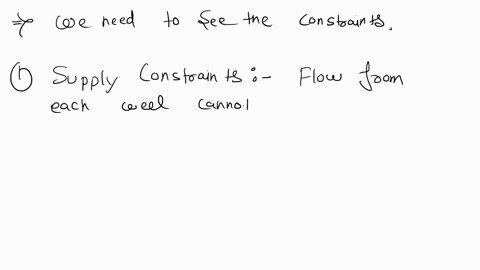 ⇒ we need to see the constraints.
① Supply Constraints :- Flow from
each weel cannot